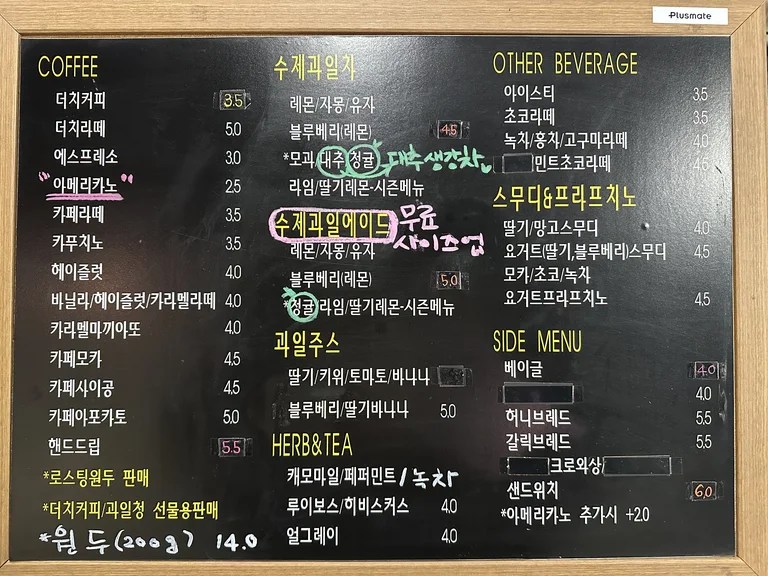 Plusmate
COFFEE
더치커피 3.5
더치라떼 5.0
에스프레소 3.0
"아메리카노" 2.5
카페라떼 3.5
카푸치노 3.5
헤이즐럿 4.0
바닐라/헤이즐럿/카라멜라떼 4.0
카라멜마끼아또 4.0
카페모카 4.5
카페사이공 4.5
카페아포카토 5.0
핸드드립 5.5
*로스팅원두 판매
*더치커피/과일청 선물용판매
*원두(200g) 14.0
수제과일차
레몬/자몽/유자
블루베리(레몬) 4.5
*모과/대추/청귤 대추생강차
라임/딸기레몬-시즌메뉴
수제과일에이드 무료
사이즈업
레몬/자몽/유자
블루베리(레몬) 5.0
*청귤/라임/딸기레몬-시즌메뉴
과일주스
딸기/키위/토마토/바나나
블루베리/딸기바나나 5.0
HERB&TEA
캐모마일/페퍼민트/녹차
루이보스/히비스커스 4.0
얼그레이 4.0
OTHER BEVERAGE
아이스티 3.5
초코라떼 3.5
녹차/홍차/고구마라떼 4.0
민트초코라떼 4.5
스무디&프라프치노
딸기/망고스무디 4.0
요거트(딸기,블루베리)스무디 4.5
모카/초코/녹차
요거트프라프치노 4.5
SIDE MENU
베이글 4.0
4.0
허니브레드 5.5
갈릭브레드 5.5
크로와상
샌드위치 6.0
*아메리카노 추가시 +2.0